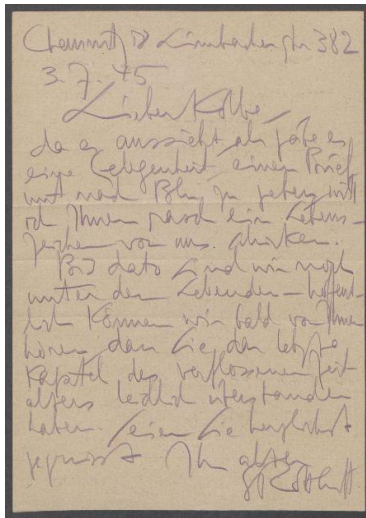 Chemnitz Limbacherstr 382
3.7.45
Lieber Kolbe –
da es aussieht als gäbe es
eine Gelegenheit einen Brief
mit nach Bln zu geben will
ich Ihnen rasch ein Lebens-
zeichen von uns schicken.
Bis dato sind wir noch
unter den Lebenden – hoffent-
lich können wir bald von Ihnen
hören, dass Sie das letzte
Kapitel der verflossenen Zeit
leidlich überstanden
haben. Seien Sie herzlichst
gegrüsst Ihr alter